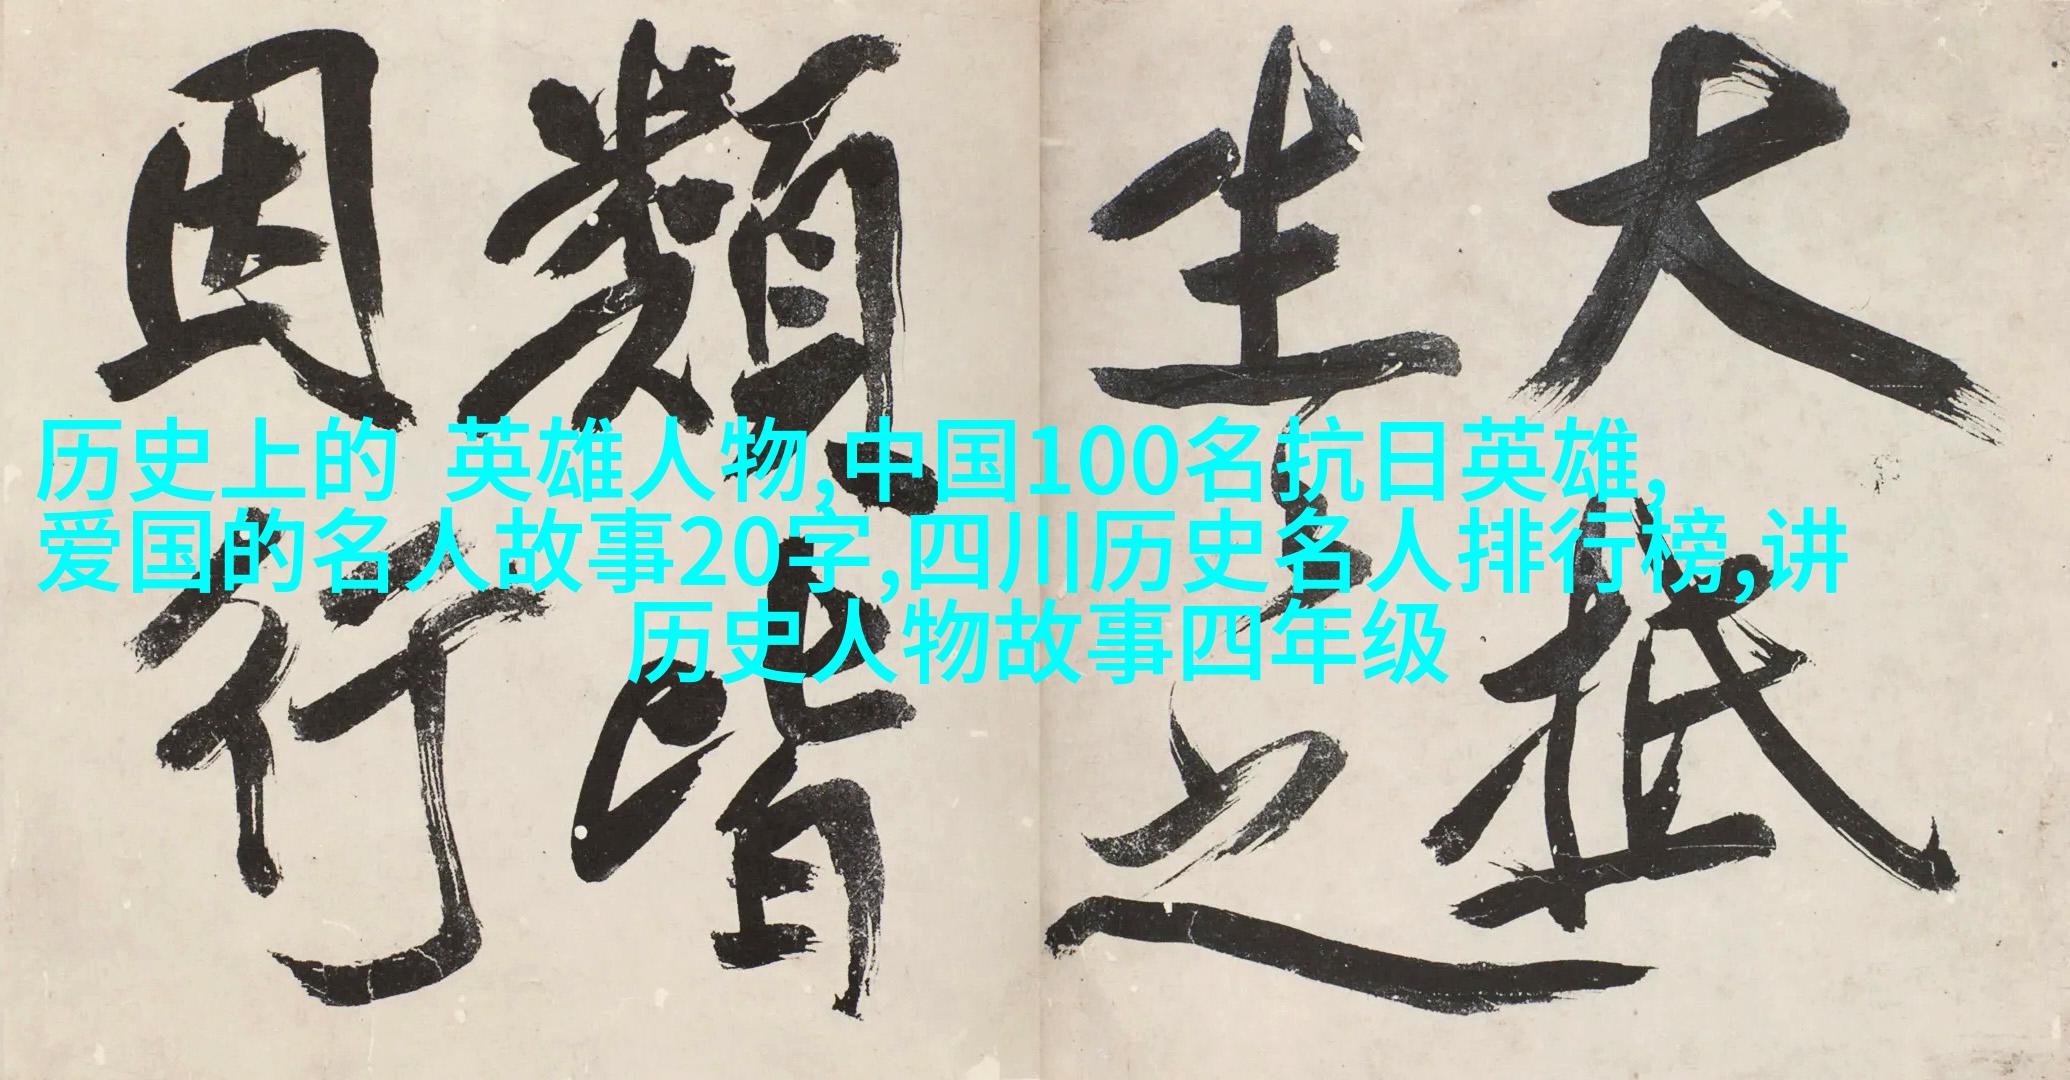 大抵
生
類皆
因行
历史上的 英雄人物,中国100名抗日英雄,
爱国的名人故事20字,四川历史名人排行榜,讲
历史人物故事四年级